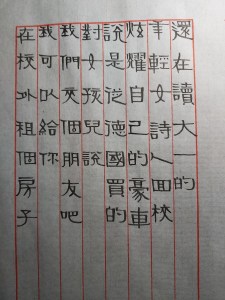 還在讀大一的
年輕女詩人面校
炫耀自己的豪車
說是從德國買的
對女孩兒說
我們交個朋友吧
我可以給你
在校外租個房子